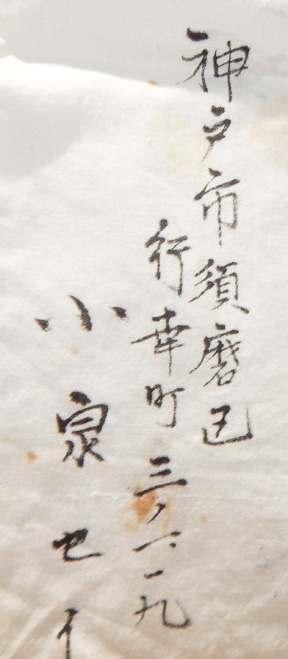 神戸市須磨区
行幸町三ノ一ノ一九
小泉せイ